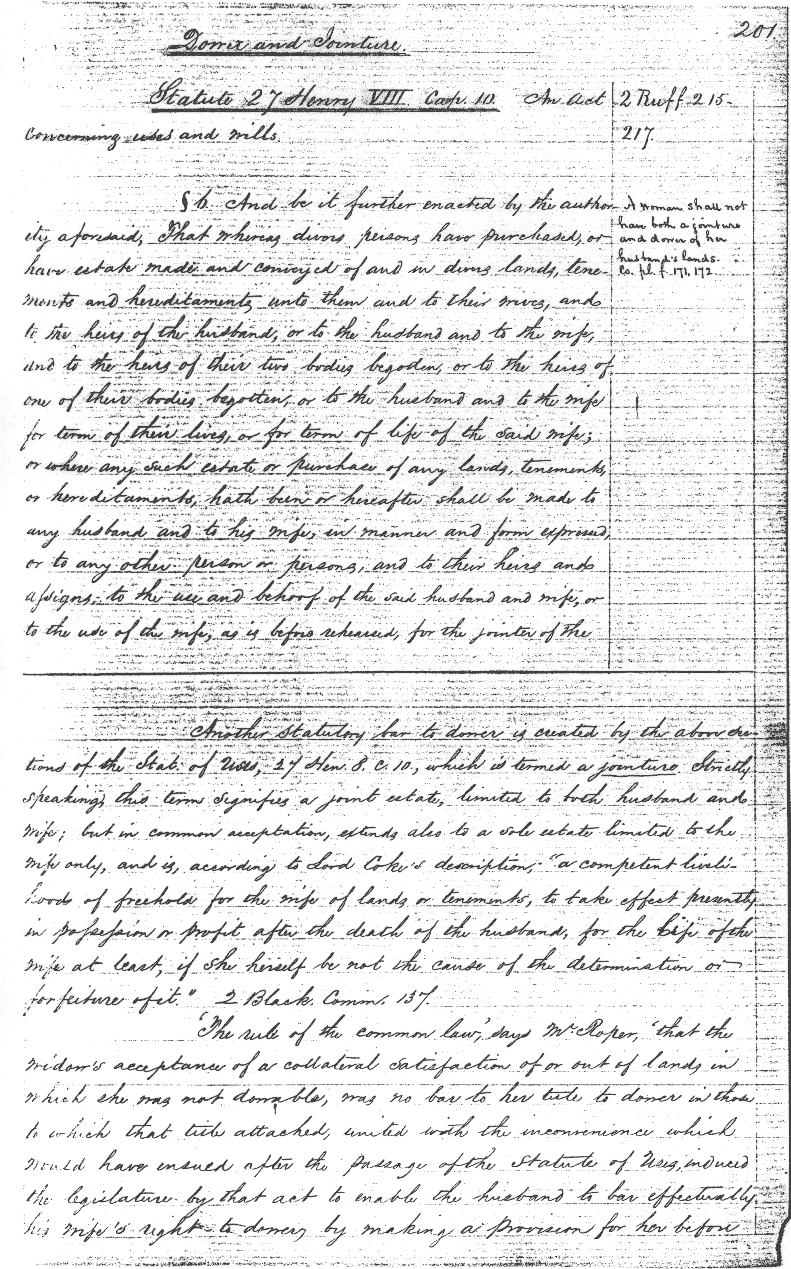 201.
Dower and Jointure.
Statute 27 Henry VIII. Cap. 10. An Act
concerning uses and wills.
2 Ruff. 215-
217.
§ 6. And be it further enacted by the author-
ity aforesaid, That whereas divers persons have purchased, or
have estate made and conveyed of and in divers lands, tene-
ments and hereditaments unto them and to their wives, and
to the heirs of the husband, or to the husband and to the wife,
and to the heirs of their two bodies begotten, or to the heirs of
one of their bodies begotten, or to the husband and to the wife
for term of their lives, or for term of life of the said wife;
or where any such estate or purchase of any lands, tenements,
or hereditaments, hath been or hereafter shall be made to
any husband and to his wife, in manner and form expressed,
or to any other person or persons, and to their heirs and
assigns, to the use and behoof of the said husband and wife, or
to the use of the wife, as is before rehearsed, for the jointer of the
A woman shall not
have both a jointure
and dower of her
husband's lands.
Co. pl. f. 171, 172.
Another statutory bar to dower is created by the above
tions of the Stat. of Uses, 27 Hen. 8. c. 10, which is termed a jointure. Strictly
speaking, this term signifies a joint estate, limited to both husband and
wife; but in common acceptation, extends also to a sole estate limited to the
wife only, and is, according to Lord Coke's description, "a competent liveli-
hood of freehold for the wife of lands or tenements, to take effect presently
in possession or profit after the death of the husband, for the life of the
wife at least, if she herself be not the cause of the determination or
forfeiture of it." 2 Black. Comm. 137.
'The rule of the common law,' says Mr. Roper, 'that the
widow's acceptance of a collateral satisfaction of or out of lands in
which she was not dowable, was no bar to her title to dower in those
to which that title attached, united with the inconvenience which
would have ensued after the passage of the Statute of Uses, induced
the legislature by that act to enable the husband to bar effectually
his wife's right to dower, by making a provision for her before